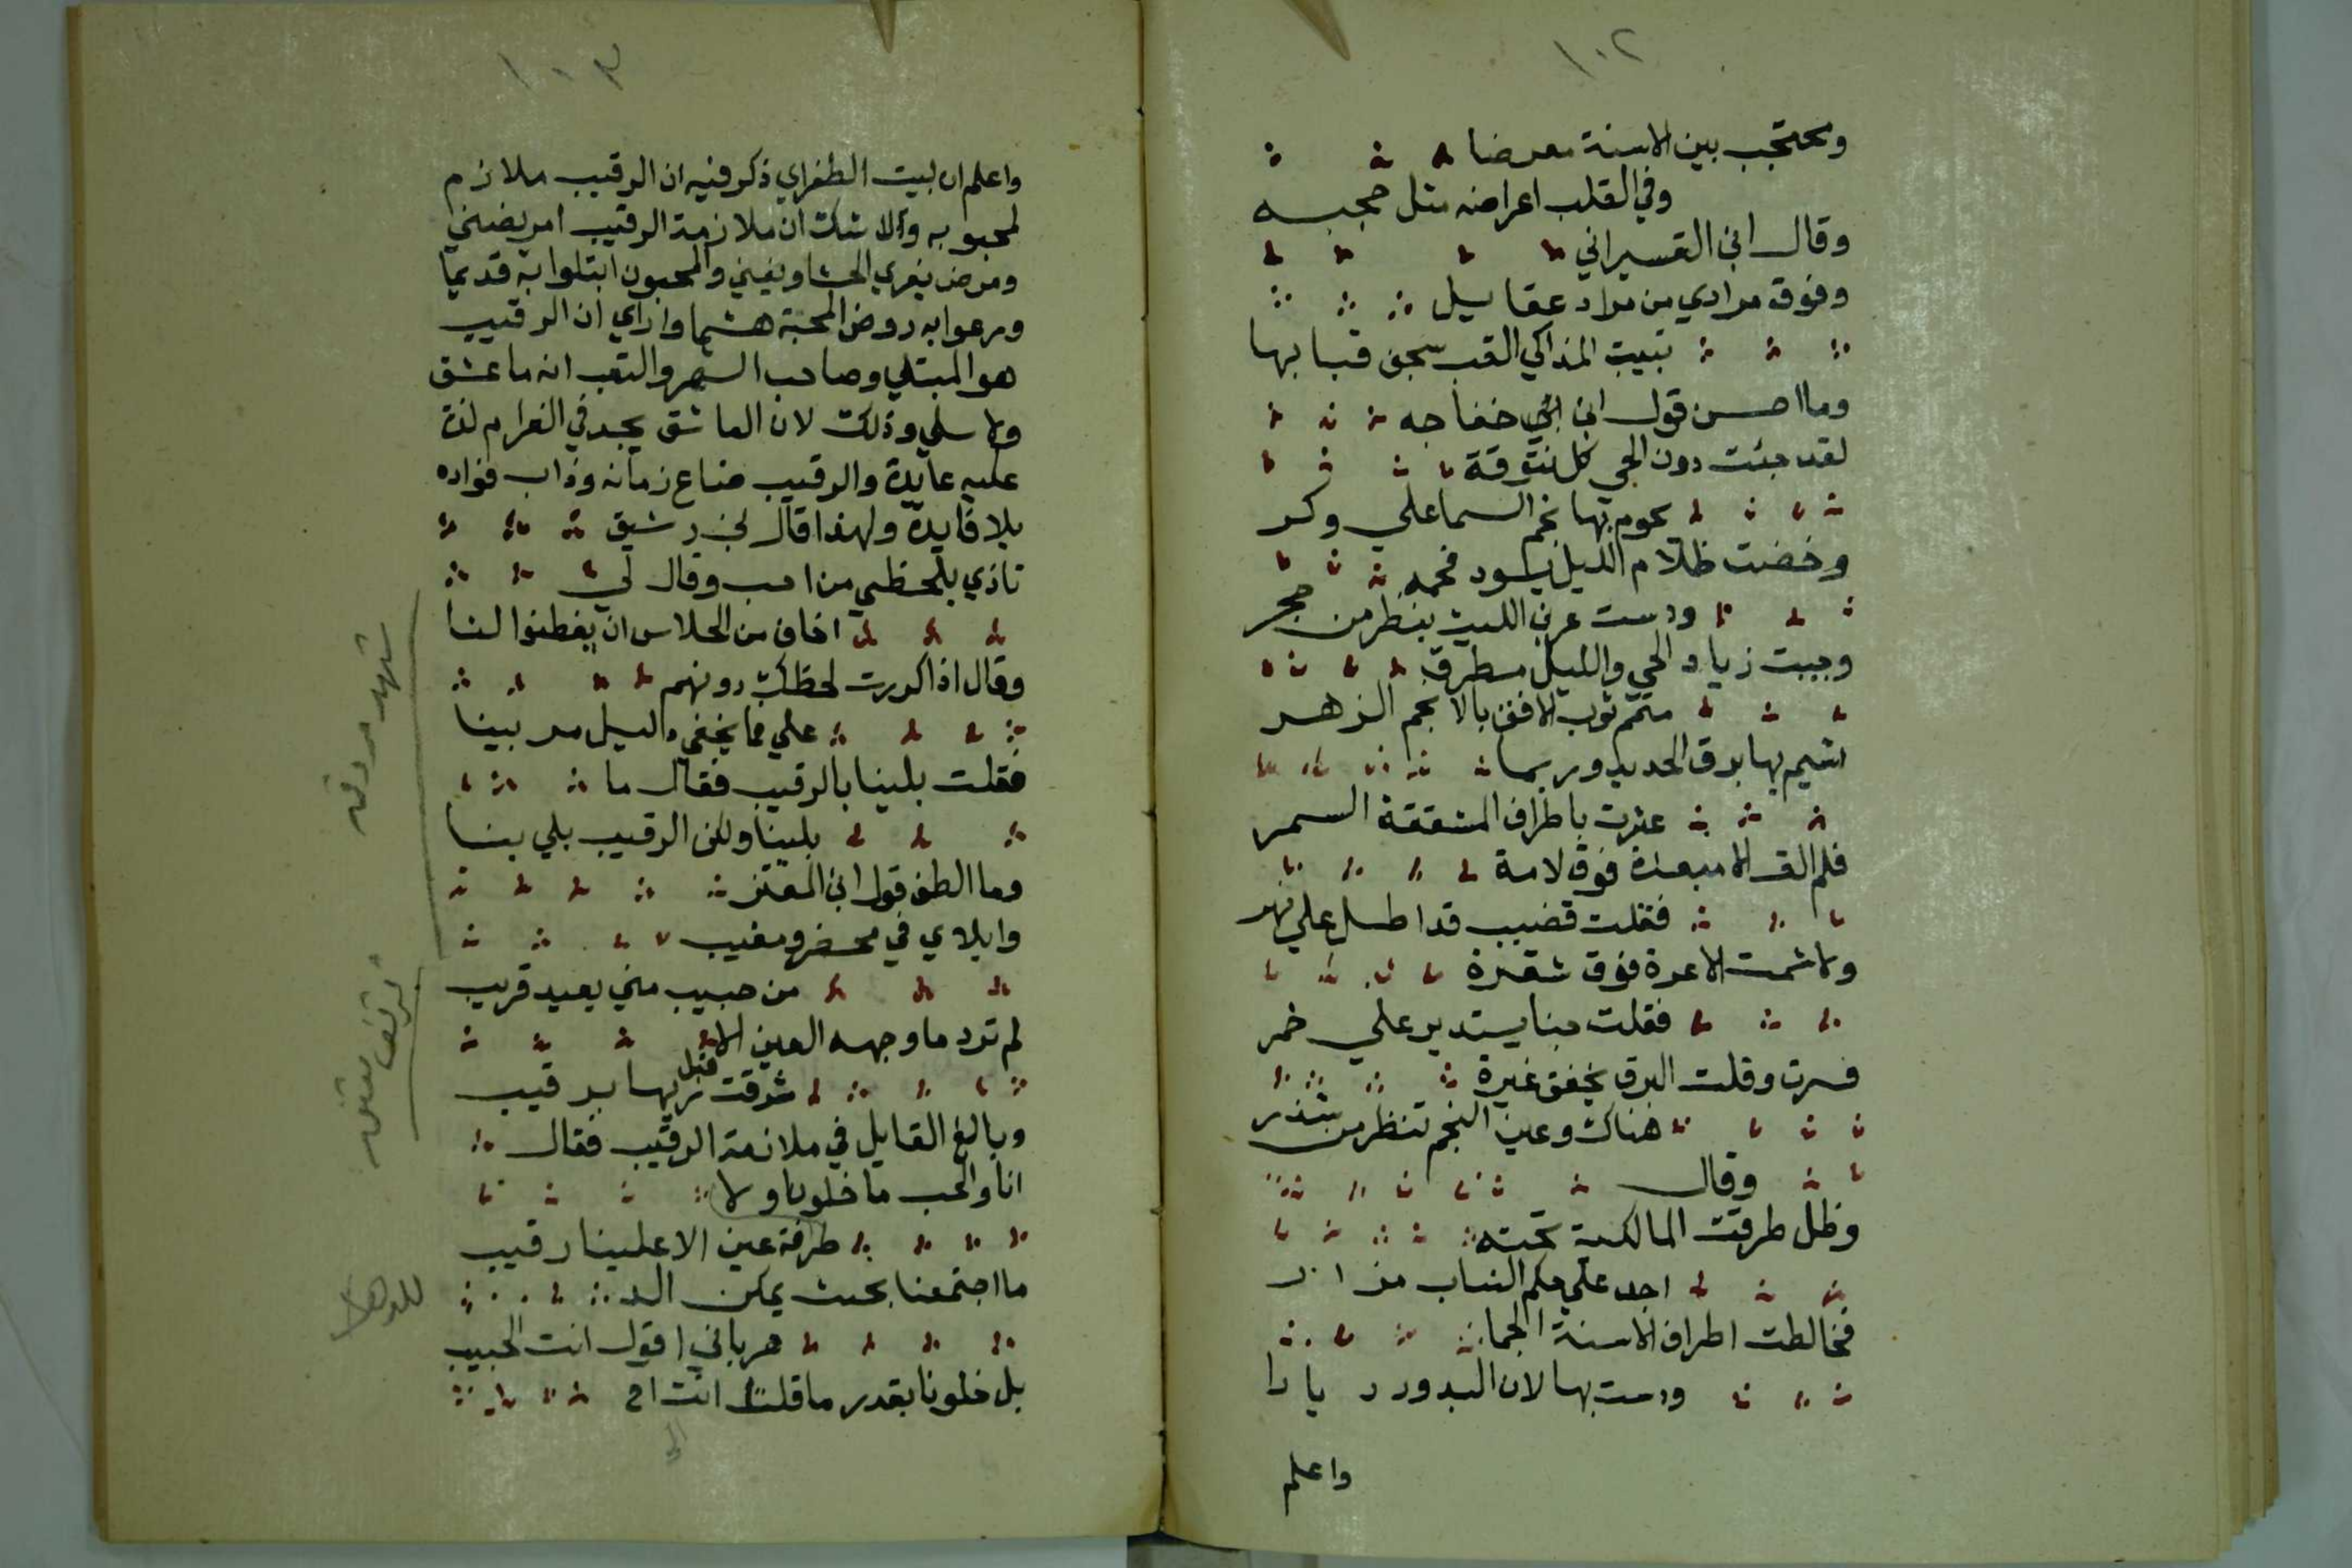 ١٠٢
ومحتجب بين الاسنة معرضا
وفي القلب اعراضه مثل حجبه
وقال ابن القسيراني
وفوق مرادي من مراد عقايل
تبيت المذاكي القب سجف قبابها
وما احسن قول ابن ابي خفاجه
لقد جئت دون الحي كل تنوقة
يحوم بها نجم السما علي وكر
وخضت ظلام الليل يسود فحمه
ودست عرين الليث ينظر من جمر
وجيت زياد الحي والليل مطرق
متمم ثوب الافق بالانجم الزهر
اشيم بها برق الحديد وربما
عثرت باطراف المثقفة السمر
فلم الق الا صعدة فوق لامة
فقلت قضيب قد اطل علي نهر
ولا شمت الا غرة فوق شقرة
فقلت حبنا يستدير علي خمر
فسرت وقلت البرق يخفق غيرة
هناك وعين النجم تنظر من شذر
وقال
وظل طرقت المالكية تحته
اجد علي حكم الشباب مزارا
فخالطت اطراف الاسنة انجما
ودست بها لان البدور ديارا
واعلم
١٠٣
واعلم ان بيت الطغراي ذكر فيه ان الرقيب ملازم
لمحبوبه ولا شك ان ملازمة الرقيب امر يضني
ومرض يفري الحشا ويفني والمحبون ابتلوا به قديما
ورعوا به روض المحبة هشيما واراي ان الرقيب
هو المبتلي وصاحب السهر والتعب انه ما عشق
ولا سلي وذلك لان العاشق يجد في الغرام لذة
عليه عايدة والرقيب ضاع زمانه وذاب فؤاده
بلا فايدة ولهذا قال بن رشيق
تاذي بلحظي من احب وقال لي
اخاف من الجلاس ان يفطنوا لنا
وقال اذا كررت لحظك دونهم
علي فما يخفي دليل مريبنا
فقلت بلينا بالرقيب فقال ما
بلينا ولكن الرقيب بلي بنا
وما الطف قول ابن المعتز
وابلاي في محضر ومغيب
من حبيب مني بعيد قريب
لم ترد ما وجهه العين الا
شرقت قبل ريها برقيب
وبالغ القايل في ملازمة الرقيب فقال
انا والحب ما خلونا ولا
طرفة عين الا علينا رقيب
ما اجتمعنا بحيث يمكن الد
هر باني اقول انت الحبيب
بل خلونا بقدر ما قلت انت اح